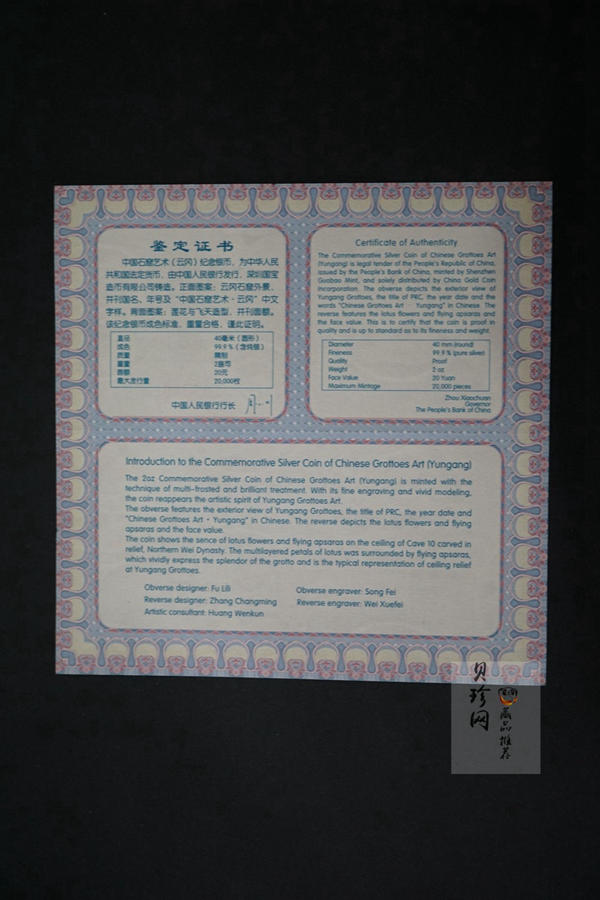 鉴定证书
中国石窟艺术（云冈）纪念银币，为中华人民
共和国法定货币，由中国人民银行发行，深圳国宝
造币有限公司铸造。正面图案：云冈石窟外景，
并刊国名、年号及“中国石窟艺术·云冈”中文
字样。背面图案：莲花与飞天造型，并刊面额。
该纪念银币成色标准，重量合格，谨此证明。
直径 40毫米（圆形）
成色 99.9％（含纯银）
质量 精制
重量 2盎司
面额 20元
最大发行量 20,000枚
中国人民银行行长
Certificate of Authenticity
The Commemorative Silver Coin of Chinese Grottoes Art
(Yungang) is legal tender of the People's Republic of China,
issued by the People's Bank of China, minted by Shenzhen
Guobao Mint, and solely distributed by China Gold Coin
Incorporation. The obverse depicts the exterior view of
Yungang Grottoes, the title of PRC, the year date and the
words "Chinese Grottoes Art · Yungang" in Chinese. The
reverse features the lotus flowers and flying apsaras and
the face value. This is to certify that the coin is proof in
quality and is up to standard as to its fineness and weight.
Diameter 40 mm (round)
Fineness 99.9% (pure silver)
Quality Proof
Weight 2 oz
Face Value 20 Yuan
Maximum Mintage 20,000 pieces
Zhou Xiaochuan
Governor
The People's Bank of China
Introduction to the Commemorative Silver Coin of Chinese Grottoes Art (Yungang)
The 2oz Commemorative Silver Coin of Chinese Grottoes Art (Yungang) is minted with the
technique of multi-frosted and brilliant treatment. With its fine engraving and vivid modeling,
the coin reappears the artistic spirit of Yungang Grottoes Art.
The obverse features the exterior view of Yungang Grottoes, the title of PRC, the year date and
"Chinese Grottoes Art · Yungang" in Chinese. The reverse depicts the lotus flowers and flying
apsaras and the face value.
The coin shows the sence of lotus flowers and flying apsaras on the ceiling of Cave 10 carved in
relief, Northern Wei Dynasty. The multilayered petals of lotus was surrounded by flying apsaras,
which vividly express the splendor of the grotto and is the typical representation of ceiling relief
at Yungang Grottoes.
Obverse designer: Fu Lili
Obverse engraver: Song Fei
Reverse designer: Zhang Changming
Reverse engraver: Wei Xuefei
Artistic consultant: Huang Wenkun
贝珍网
藏品推荐